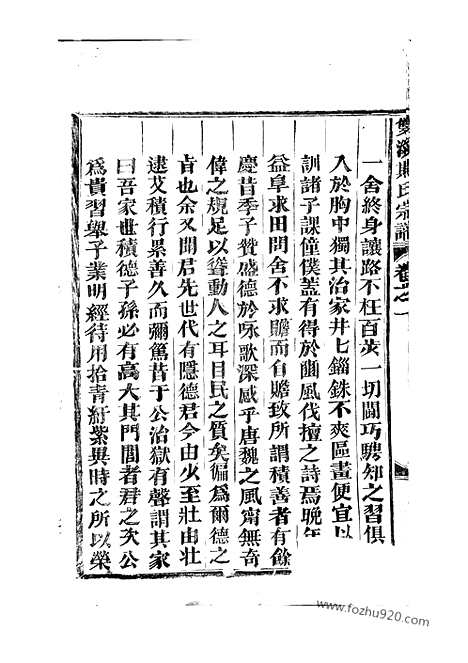 雙溪熊氏宗譜 卷之一
一舍終身讓路不枉百莢一切鬬巧騁知之習俱
入於胸中獨其治家井匕錙銖不爽區畫便宜以
訓諸子課僮僕蓋有得於豳風伐擅之詩焉晚年
益阜求田問舍不求贍而自贍致所謂積善者有餘
慶昔季子贊盛德於咏歌深感乎唐魏之風甯無奇
偉之規足以聳動人之耳目民之質矣徧爲爾德之
㫖也余又聞君先世代有隱德君今由少至壯由壯
逮艾積行累善久而彌篤昔于公治獄有聲謂其家
曰吾家世積德子孫必有高大其門閭者君之次公
爲貴習舉子業明經待用拾青紆紫異時之所以榮
www.fozhu920.com